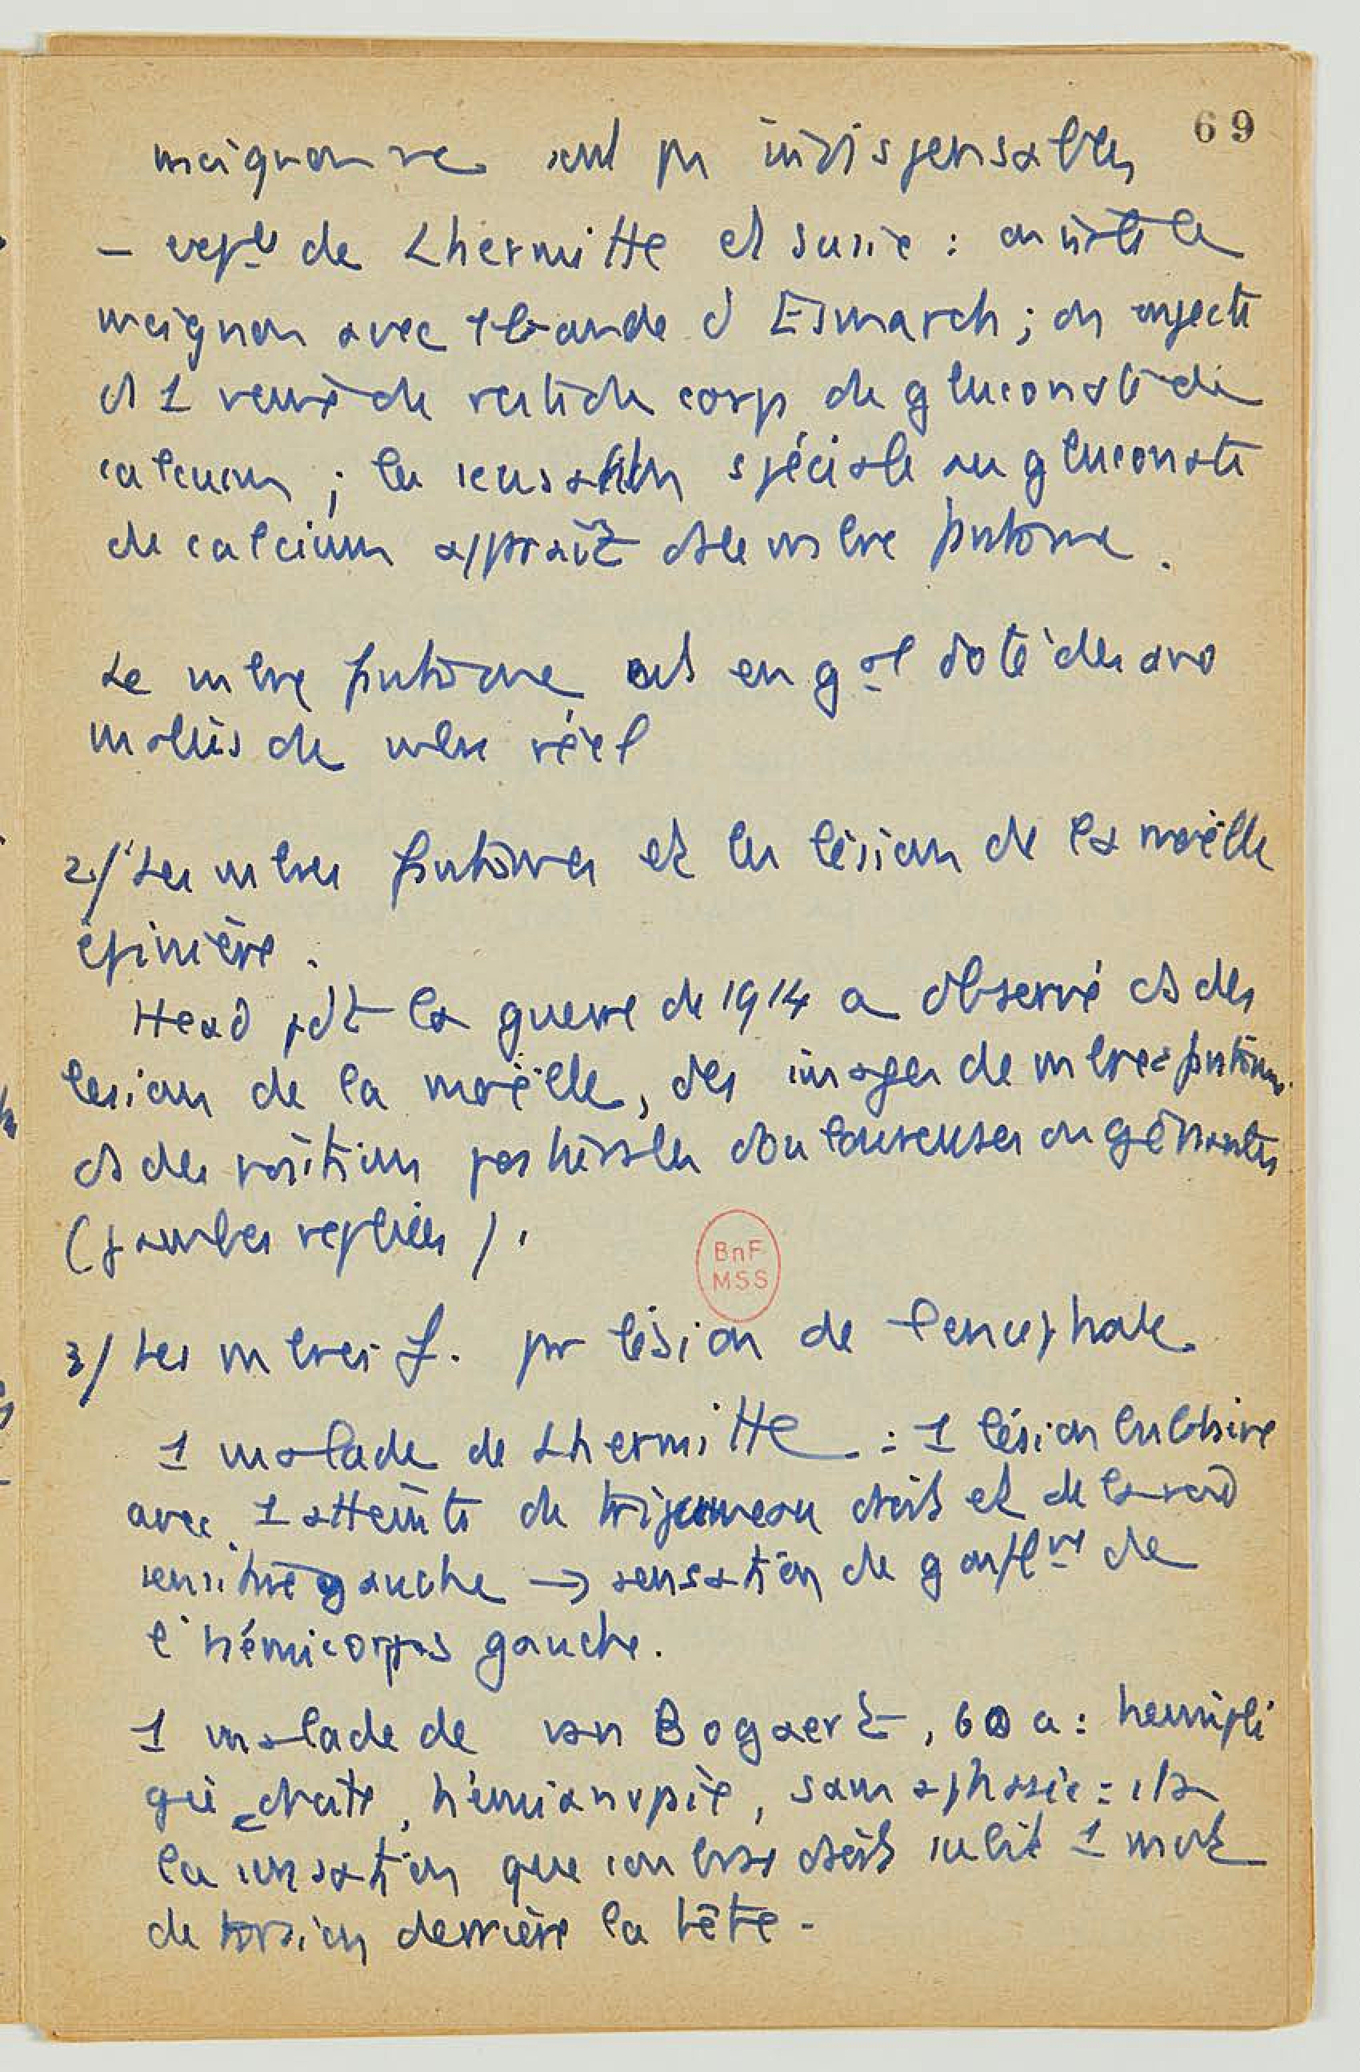 69
moignon ne sont pas indispensables
– expces de Lhermitte et Susic : on isole le
moignon avec 1 bande d'Esmarch ; on injecte
ds 1 veine du reste du corps du gluconate de
calcium ; la sensation spéciale au gluconate
de calcium apparaît ds le mbre fantôme.
Le mbre fantôme est en gal doté des ano
malies du mbre réel
2/ Les mbres fantômes et les lésions de la moëlle
épinière.
Head pdt la guerre de 1914 a observé ds des
lésions de la moëlle, des images de mbres fantômes
ds des positions pariétales douloureuses ou gênantes
(jambes repliées).
3/ Les mbres f. par lésion de l'encéphale
1 malade de Lhermitte : 1 lésion bulbaire
avec 1 atteinte du trijumeau droit et de la voie
sensitive gauche → sensation de gonflmt de
l'hémicorps gauche.
1 malade de van Bogaert, 60 a : hémiplé
gie droite, hémianopsie, sans aphasie : il a
la sensation que son bras droit subit 1 mvt
de torsion derrière la tête -
BnF
MSS